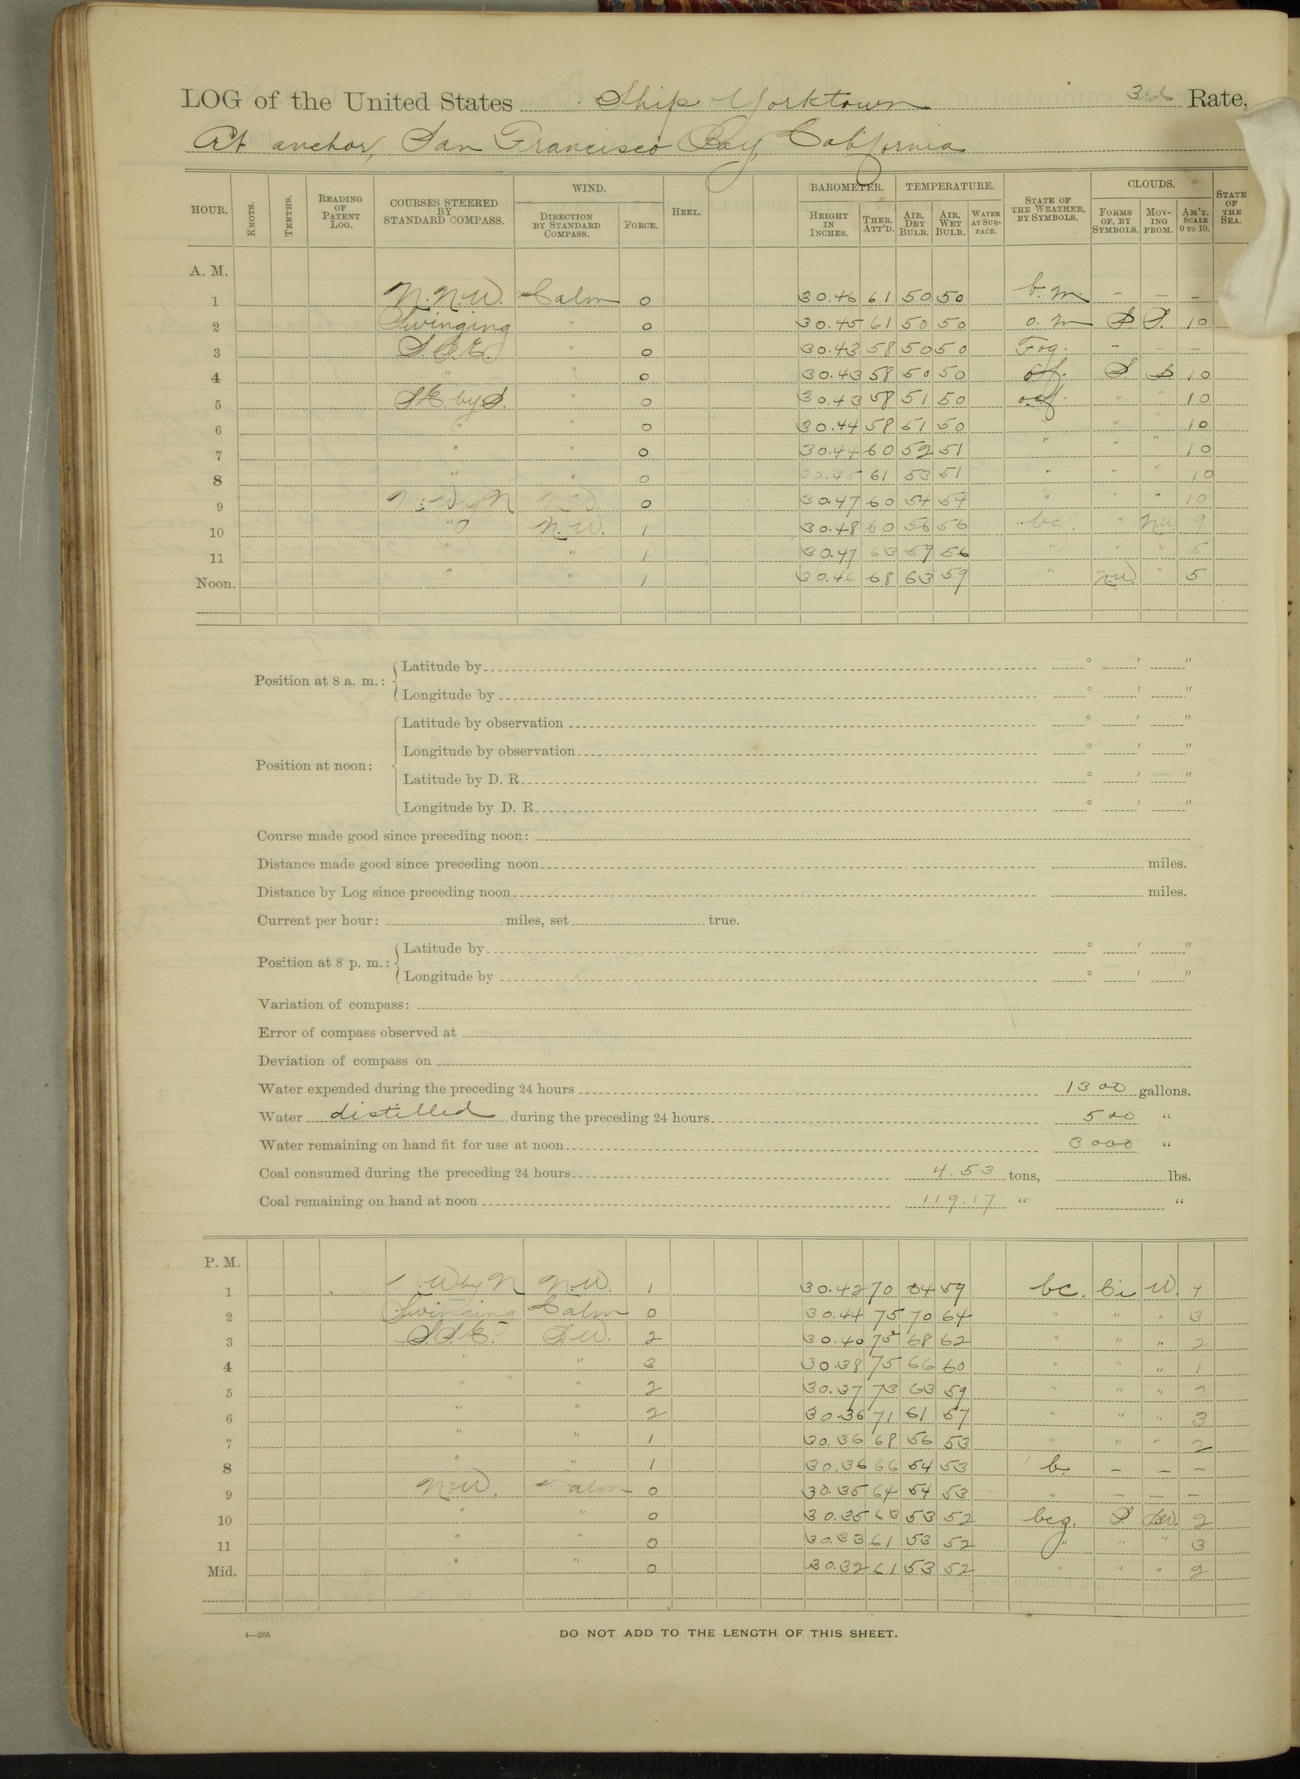 LOG of the United States Ship Yorktown 3rd Rate,
At anchor, San Francisco Bay, California
HOUR. KNOTS. TENTHS. READING OF PATENT LOG. COURSES STEERED BY STANDARD COMPASS. WIND. DIRECTION BY STANDARD COMPASS. FORCE. HEEL. BAROMETER. HEIGHT IN INCHES. THER. ATT'D. TEMPERATURE. AIR, DRY BULB. AIR, WET BULB. WATER AT SURFACE. STATE OF THE WEATHER, BY SYMBOLS. CLOUDS. FORMS OF, BY SYMBOLS. MOVING FROM. AM'T. SCALE 0 TO 10. STATE OF THE SEA.
A. M.
1 N.N.W. Calm 0 30.46 61 50 50 b.m. — — —
2 Swinging " 0 30.45 61 50 50 o.m S S. 10
3 S.S.E. " 0 30.43 58 50 50 Fog. — — —
4 " " 0 30.43 58 50 50 of. S. S 10
5 SE by S. " 0 30.43 58 51 50 " " 10
6 " " 0 30.44 58 51 50 " " " 10
7 " " 0 30.44 60 52 51 " " " 10
8 " " 0 30.45 61 53 51 " " " 10
9 N.W by N 0 30.47 60 54 54 " " " 10
10 " N.W. 1 30.48 60 56 56 bc. " NW. 9
11 " " 1 30.47 63 59 56 " " " 5
Noon. " " 1 30.46 68 63 59 " N.W. " 5
Position at 8 a. m.: Latitude by ° ' "
Longitude by ° ' "
Position at noon: Latitude by observation ° ' "
Longitude by observation ° ' "
Latitude by D. R. ° ' "
Longitude by D. R. ° ' "
Course made good since preceding noon:
Distance made good since preceding noon miles.
Distance by Log since preceding noon miles.
Current per hour: miles, set true.
Position at 8 p. m.: Latitude by ° ' "
Longitude by ° ' "
Variation of compass:
Error of compass observed at
Deviation of compass on
Water expended during the preceding 24 hours 1300 gallons.
Water distilled during the preceding 24 hours 500 "
Water remaining on hand fit for use at noon 3000 "
Coal consumed during the preceding 24 hours 4.53 tons, lbs.
Coal remaining on hand at noon 119.17 " "
P. M.
1 W by N N.W. 1 30.42 70 64 59 bc. Ci W. 4
2 Swinging Calm 0 30.44 75 70 64 " " " 3
3 S.S.E. S.W. 2 30.40 75 68 62 " " " 2
4 " " 3 30.38 75 66 60 " " " 1
5 " " 2 30.37 73 63 59 " " " 2
6 " " 2 30.36 71 61 57 " " " 3
7 " " 1 30.36 68 56 53 " " " 2
8 " " 1 30.36 66 54 53 b. — — —
9 N.W. Calm 0 30.35 64 54 53 " — — —
10 " " 0 30.35 63 53 52 bcg. S. SW. 2
11 " " 0 30.33 61 53 52 " " " 3
Mid. " " 0 30.32 61 53 52 " " " 2
4—265
DO NOT ADD TO THE LENGTH OF THIS SHEET.